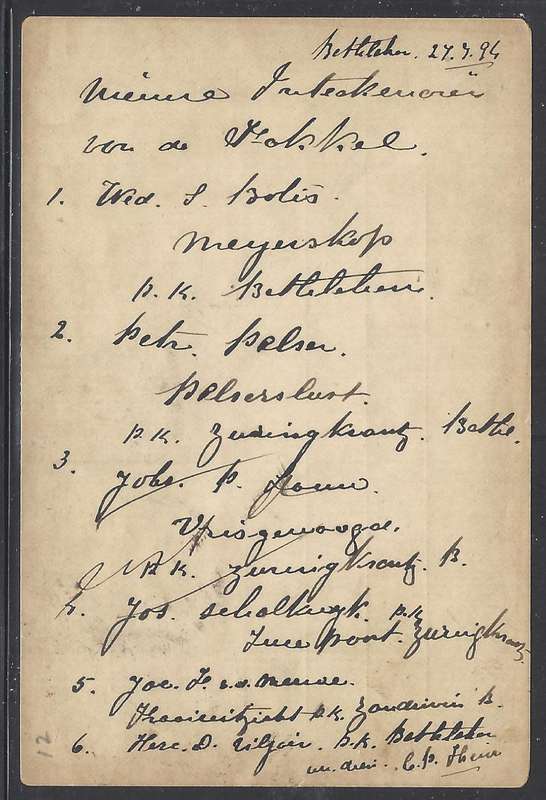 Bethlehem. 27.7.94
Nieuwe Inteekenaren
van de Fakkel.
1. Wed. S. Botis.
Meyerskop
p. k. Bethlehem.
2. Petr. Pelser.
Pelserslust.
p.k. Zuringkrantz. Bethl.
3. Johs. P.
p.k. Zuringkrantz. B.
4. Jos. Schalkwyk. p.k.
Zuringkrantz
5. Jac. v.d. Merwe.
p.k. Zandrivier B.
6. Herc. D. Viljoen. p.k. Bethlehem
C.P.
12